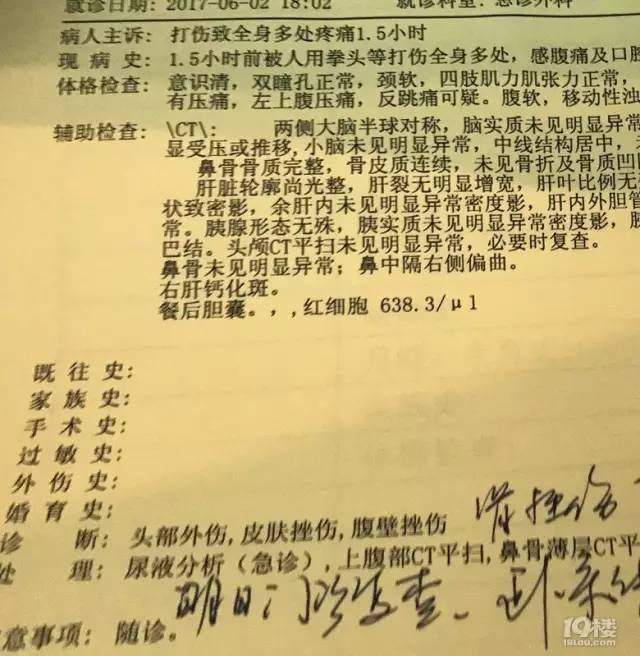 就诊日期: 2017-06-02 18:02 就诊科室: 急诊外科
病人主诉: 打伤致全身多处疼痛1.5小时
现 病 史: 1.5小时前被人用拳头等打伤全身多处, 感腹痛及口腔
体格检查: 意识清, 双瞳孔正常, 颈软, 四肢肌力肌张力正常,
有压痛, 左上腹压痛, 反跳痛可疑。腹软, 移动性浊
辅助检查: \CT\: 两侧大脑半球对称, 脑实质未见明显异常
显受压或推移, 小脑未见明显异常, 中线结构居中,
鼻骨骨质完整, 骨皮质连续, 未见骨折及骨质凹
肝脏轮廓尚光整, 肝裂无明显增宽, 肝叶比例无
状致密影, 余肝内未见明显异常密度影, 肝内外胆管
常。胰腺形态无殊, 胰实质未见明显异常密度影,
巴结。头颅CT平扫未见明显异常, 必要时复查。
鼻骨未见明显异常; 鼻中隔右侧偏曲。
右肝钙化斑。
餐后胆囊。, ,红细胞 638.3/μl
既 往 史:
家 族 史:
手 术 史:
过 敏 史:
外 伤 史:
婚 育 史:
诊 断: 头部外伤, 皮肤挫伤, 腹壁挫伤 肾挫伤
处 理: 尿液分析(急诊), 上腹部CT平扫, 鼻骨薄层CT平
明日门诊复查
意事项: 随诊。
19楼
19lou.com